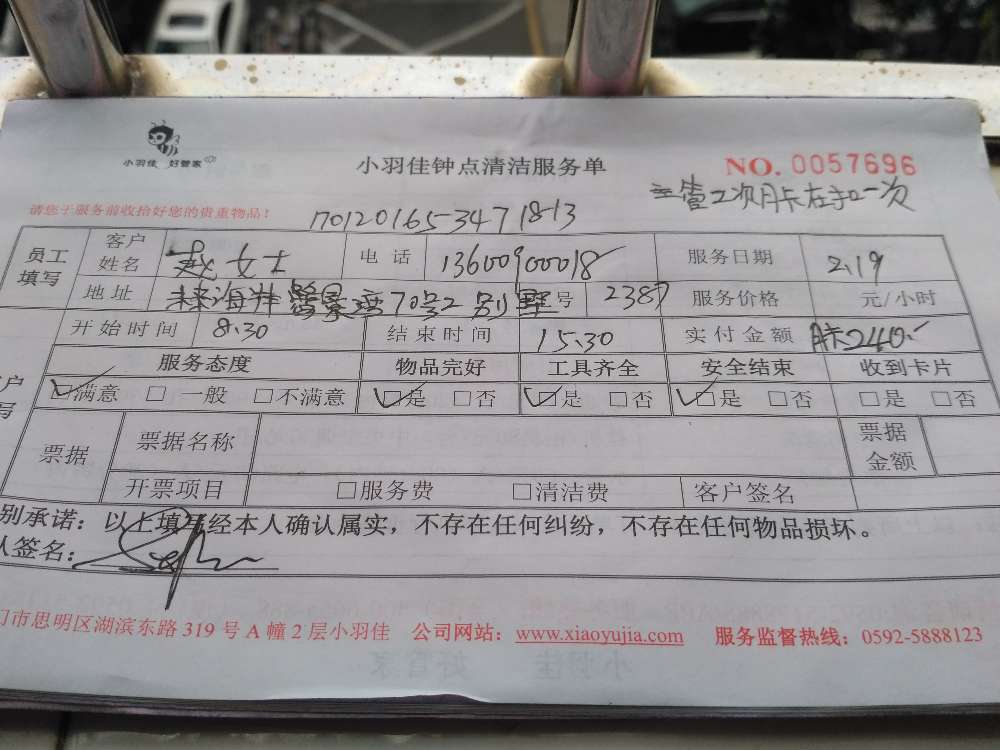 小羽佳 好管家
小羽佳钟点清洁服务单
NO. 0057696
主管2次月卡在扣一次
请您于服务前收拾好您的贵重物品！
170120165347 1813
员工填写 客户姓名 女士 电话 13600900018 服务日期 2.19
地址 70号2别墅 号 2387 服务价格 元/小时
开始时间 8:30 结束时间 15:30 实付金额 240.
服务态度 物品完好 工具齐全 安全结束 收到卡片
☑满意 □一般 □不满意 ☑是 □否 ☑是 □否 ☑是 □否 □是 □否
票据 票据名称 票据金额
开票项目 □服务费 □清洁费 客户签名
别承诺：以上填写经本人确认属实，不存在任何纠纷，不存在任何物品损坏。
人签名：
门市思明区湖滨东路 319 号 A 幢 2 层小羽佳 公司网站：www.xiaoyujia.com 服务监督热线：0592-5888123